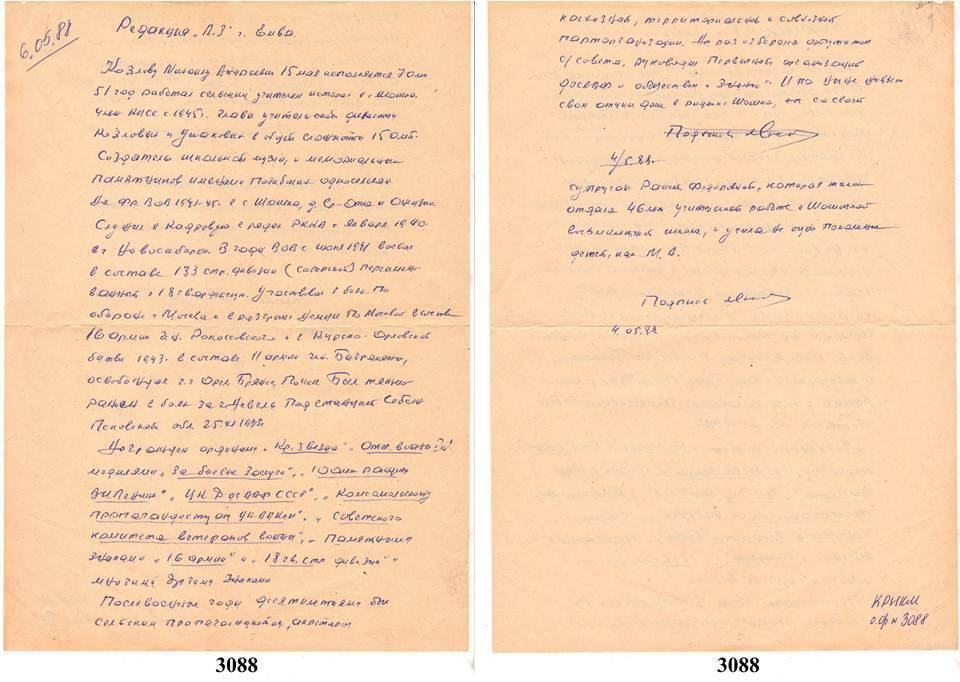 6.05.88
Редакция „Л.З" г. Емва.
Козлову Михаилу Андреевичу 15 мая исполняется 70 лет
51 год работал сельским учителем истории в с. Шошка.
Член КПСС с 1945г. Глава учительской династии
Козловых и Ушаковых с общей сложности 150 лет.
Создатель школьной музея, и мемориальных
памятников имени погибших односельчан
На фр. ВОВ 1941-45г. в с Шошка, д. Ср-Отла и Онежье.
Служил в кадровую в рядах РККА с января 1940
в г Новосибирск. В годы ВОВ с июля 1941 воевал
в составе 133 стр. дивизии (сибирской) переимено-
ванный в 18 гвардейскую. Участвовал в боях по
обороне г Москва и в разгроме немцев под Москвой в составе
16 армии Рокоссовского и в Курско-Орловской
битве 1943. в составе 11 армии Баграмяна,
освобождал г.г Орёл, Брянск, Был тяжело
ранен в боях за г. Невель под станцией
Псковской обл. 25 XI 1943г
Награжден орденами „Кр. Звезда" „Отеч войны"
медалями „За боевые заслуги", „100 лет
В.И. Ленина" „ЦК ДОСААФ СССР", „Комсомольскому
пропагандисту от ЦК ВЛКСМ", „Советского
комитета ветеранов войны", „Памятными
знаками „16 армии" и „18 гв. стр дивизии" и
многими другими знаками
Послевоенные годы десятилетиями был
сельским пропагандистом, секретарем
колхозной, территориальной и совхозной
парторганизации. раз избирался депутатом
с/совета, руководил первичной организаций
ДОСААФ и обществом „Знание". И по ныне живет
свой отчий дом в родном Шошка, со своей
Подпись
4/5.88г.
супругой Раисой Федоровной, которая также
отдала 46 лет учительской работе в Шошкой
восьмилетней школе, и учила не одно поколение
детей, как М. А.
Подпись
4.05.88
КРИКМ
о.ф № 3088
3088
3088